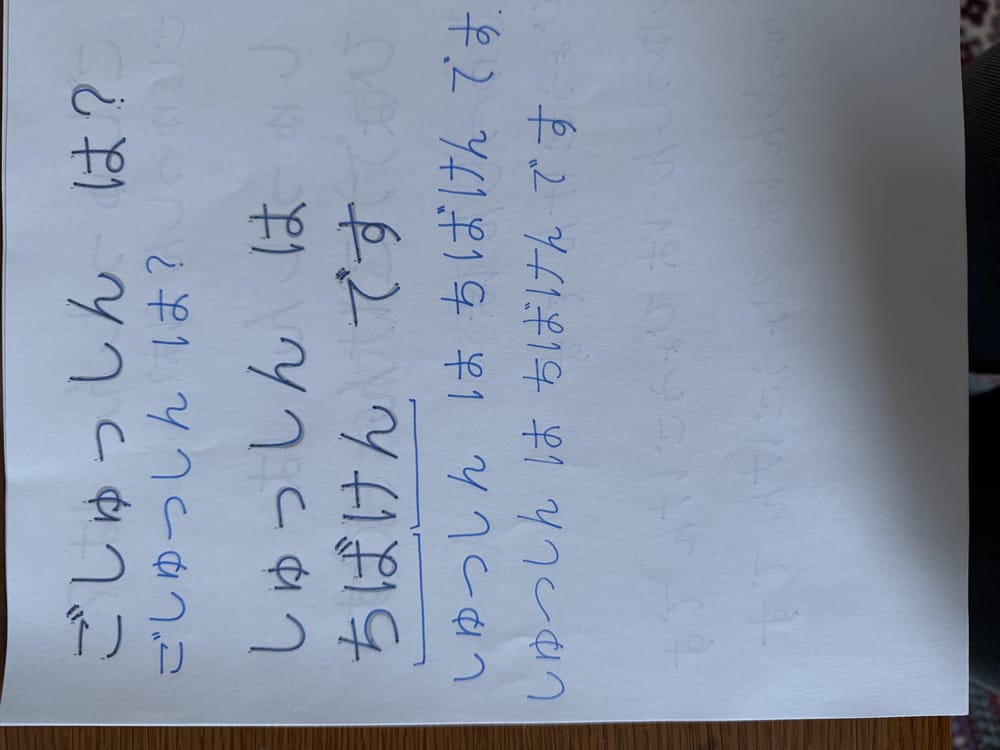 ごしゅっしんは?
ごしゅっしんは?
しゅっしんは
ちばけんです
しゅっしんはちばけんです
しゅっしんはちばけんです